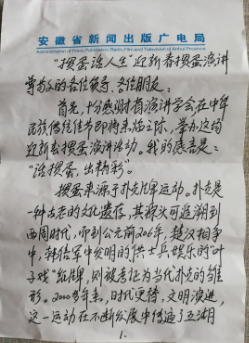 安徽省新闻出版广电局
Administration of Press, Publication, Radio, Film and Television of Anhui Province
“掼蛋谈人生”迎新春掼蛋演讲
尊敬的各位领导、各位朋友：
首先，感谢财省演讲学会在中华
民族传统佳节即将来临之际，举办这场
迎新春掼蛋演讲活动。我的感言是：
“谈掼蛋，出精彩”。
掼蛋来源于扑克牌运动。扑克是
一种古老的文化遗存，其源头可追溯到
西周时代，而到公元前206年，楚汉相争
中，韩信军中发明的供士兵娱乐的“叶
子戏”纸牌，则被考证为当代扑克的雏
形。2000多年来，时代更替，文明演进，
这一运动在不断发展中传遍了五湖
1.